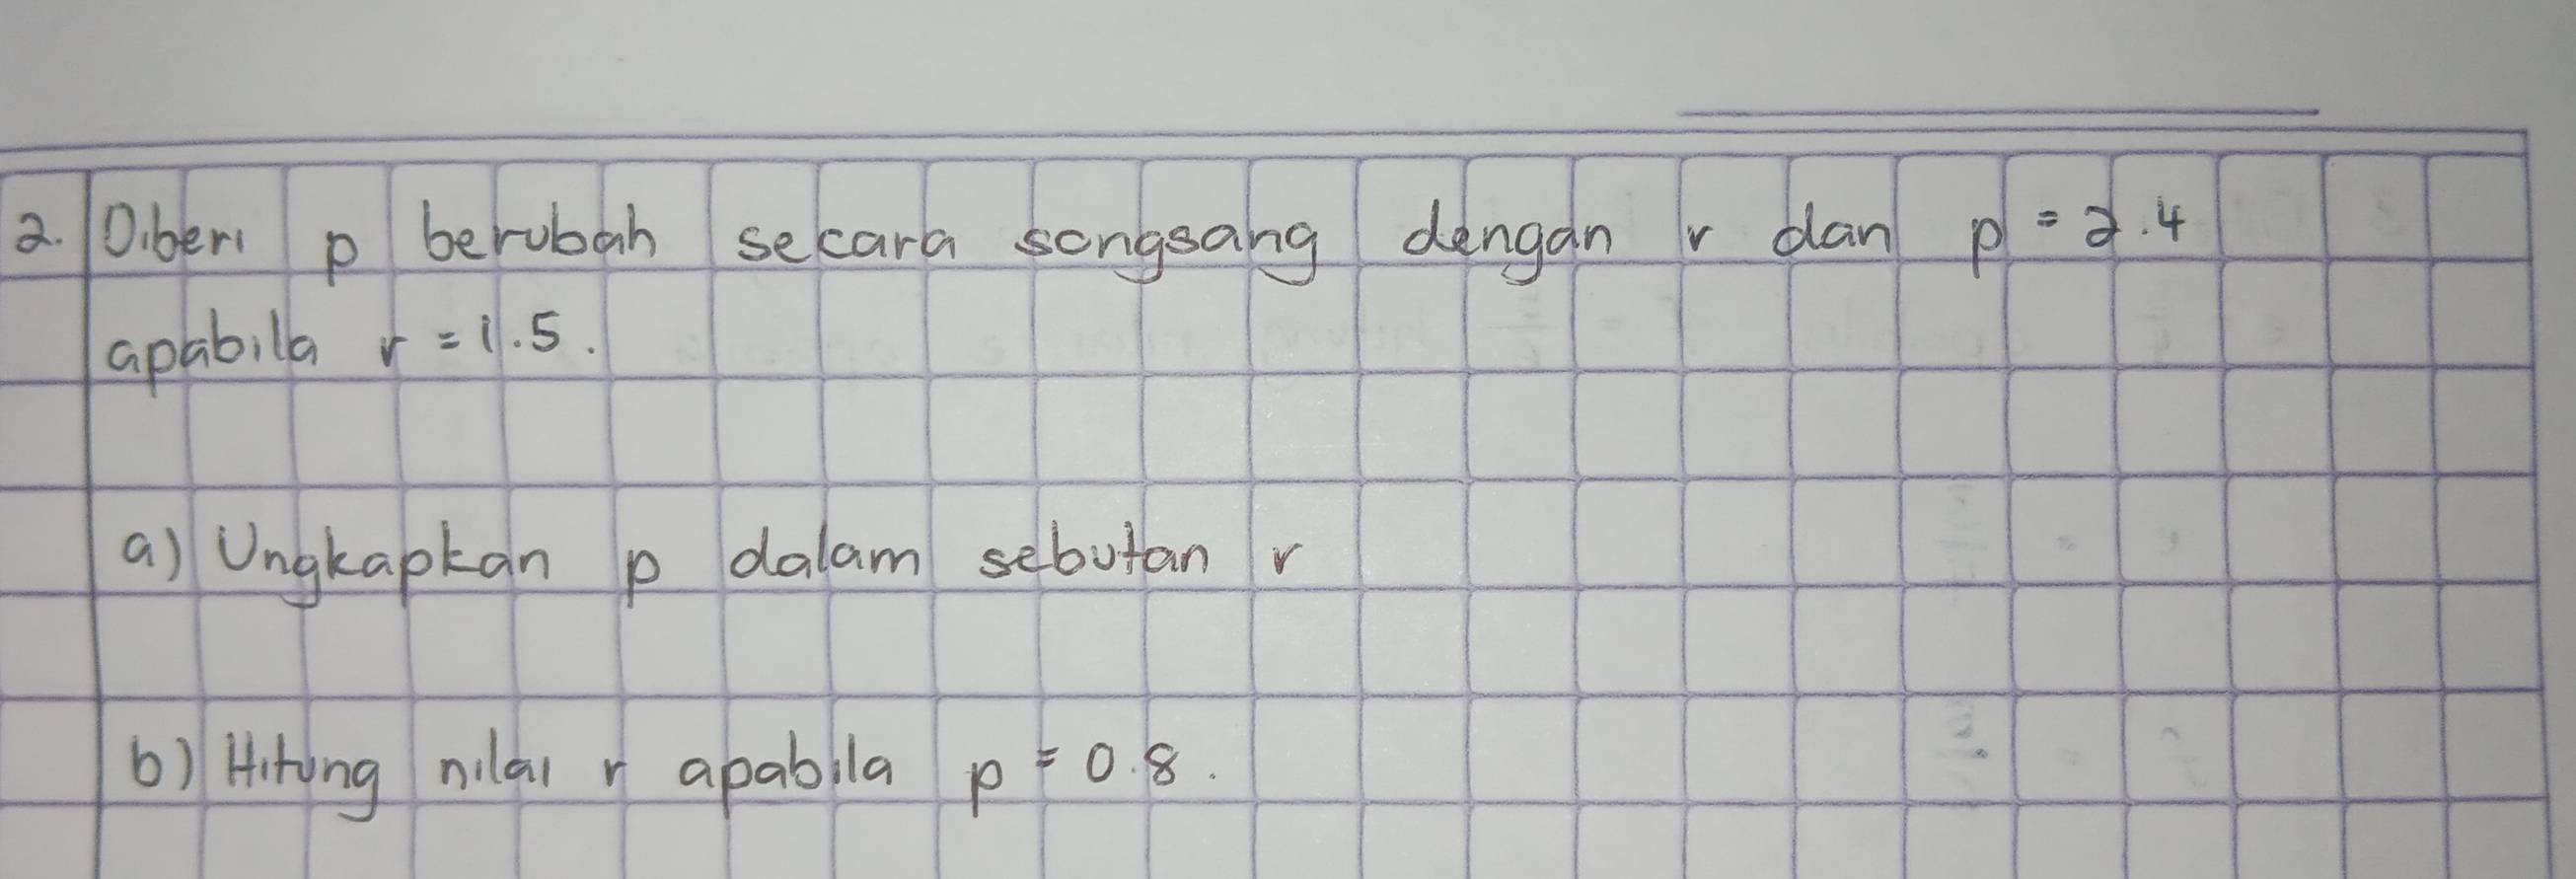 2. Diberi p berubah secara songsang dengan r dan p = 2.4
apabila r = 1.5.
a) Ungkapkan p dalam sebutan r
b) Hitung nilai r apabila p = 0.8.